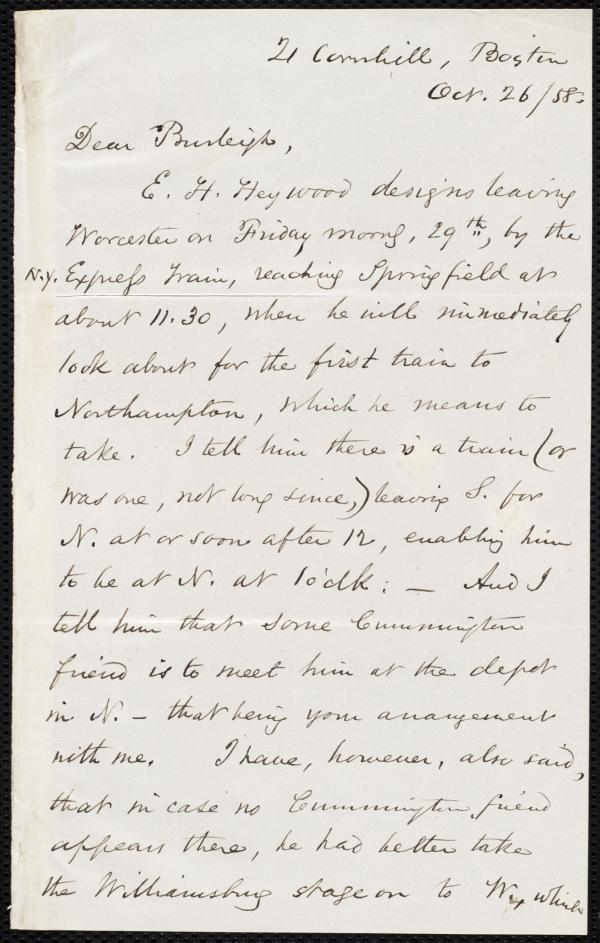 21 Cornhill, Boston
Oct. 26/58.
Dear Burleigh,
E. H. Heywood designs leaving
Worcester on Friday morng, 29th, by the
N.Y. Express Train, reaching Springfield at
about 11.30, when he will immediately
look about for the first train to
Northampton, which he means to
take. I tell him there is a train (or
was one, not long since,) leaving S. for
N. at or soon after 12, enabling him
to be at N. at 1 o'clk: — And I
tell him that some Cummington
friend is to meet him at the depot
in N. — that being your arrangement
with me. I have, however, also said,
that in case no Cummington friend
appears there, he had better take
the Williamsburg stage on to W., which